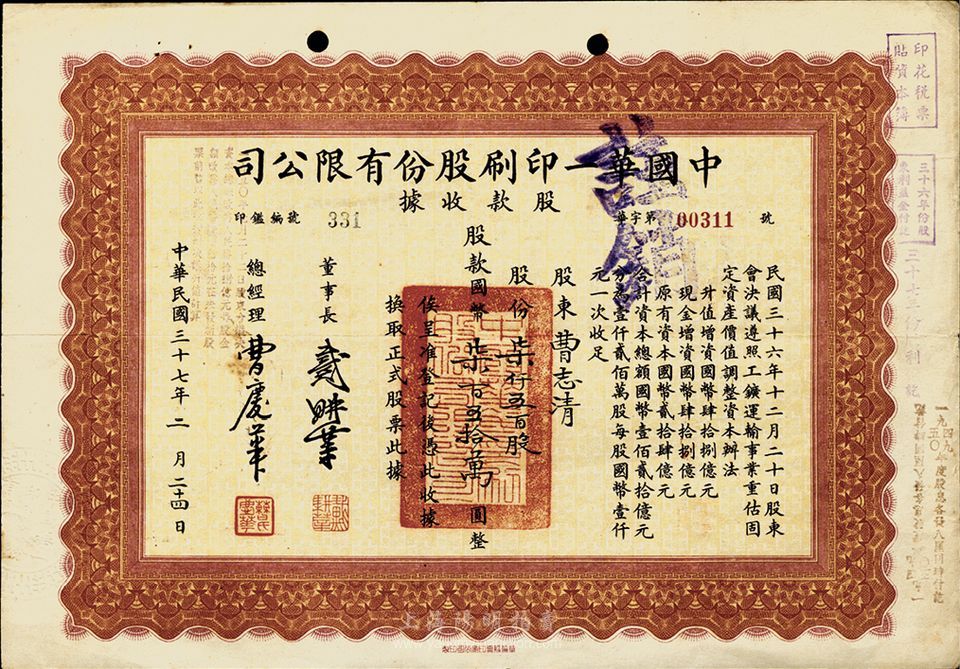 中國華一印刷股份有限公司
股款收據
華字第00311號
印鑑編號 331
民國三十六年十二月二十日股東
會決議遵照工鑛運輸事業重估固
定資產價值調整資本辦法
升值增資國幣肆拾捌億元
現金增資國幣肆拾捌億元
原有資本國幣貳拾肆億元
合計資本總額國幣壹佰貳拾億元
分為壹仟貳佰萬股每股國幣壹仟
元一次收足
股東 曹志清
股份 柒仟五百股
股款國幣 柒百五拾萬 圓整
俟呈准登記後憑此收據
換取正式股票此據
董事長
總經理 曹慶華
中華民國三十七年二月二十四日
註銷
印花稅票
貼資本簿
三十六年份股
東利益金付訖
上海陽明拍賣